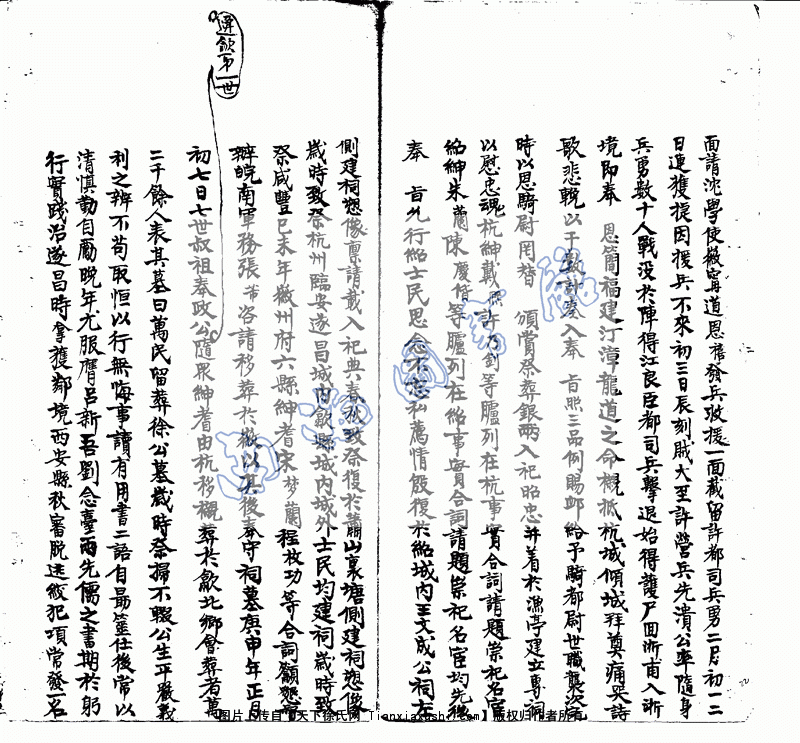 面請沈學使徽寧道恩 發兵攻援一面截留許都司兵勇二月初一二
日連獲捷因援兵不來初三日辰刻賊大至許營兵先潰公率隨身
兵勇數十人戰没於陣得江良臣都司兵擊退始得護尸回浙甫入浙
境即奉 恩簡福建汀漳龍道之命櫬抵杭城傾城拜奠痛哭詩
歌悲輓以千數計 入奉 旨照三品例賜卹給予騎都尉世職襲次
時以恩騎尉罔替 頒賞祭葬銀兩入祀昭忠并着於漁亭建立專祠
以慰忠魂杭紳戴熙許乃釗等臚列在杭事實合詞請題崇祀名宦
紹紳朱蘭陳慶偕等臚列在紹事實合詞請題崇祀名宦均先後
奉 旨允行紹士民思念不忘私薦情殷復於紹城内王文成公祠左
側建祠塑像禀請載入祀典春秋致祭復於蕭山裏塘側建祠塑像
歲時致祭杭州臨安遂昌城内歙縣城内城外士民均建祠歲時致
祭咸豐己未年徽州府六縣紳耆宋夢蘭 程枚功等合詞籲懇
辦皖南軍務張 咨請移葬於徽以其後奉守祠墓庚申年正月
初七日七世叔祖奉政公隨衆紳耆由杭移櫬葬於歙北鄉會葬者萬
二千餘人表其墓曰萬民留葬徐公墓歲時祭掃不輟公生平嚴義
利之辨不苟取恒以行無悔事讀有用書二語自勗筮仕後常以
清慎勤自勵晚年尤服膺吕新吾劉念臺兩先儒之書期於躬
行實踐治遂昌時拿獲鄰境西安縣秋審脱逃絞犯項常發一名
遷歙第一世
图片上传自【天下徐氏网 Tianxiaxushi.com】版权归作者所有